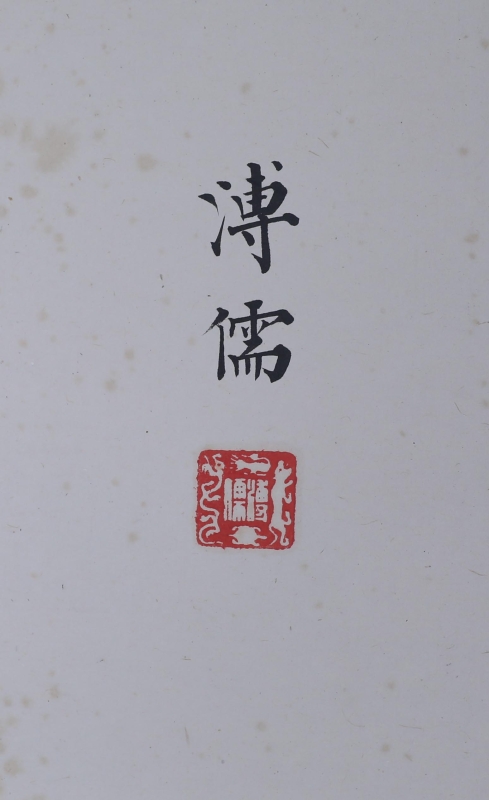 溥
儒
溥儒